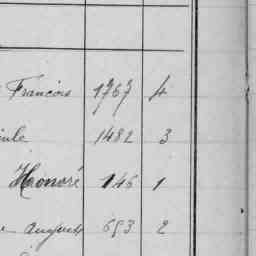 Francois 1767 4
1482 3
Honoré 146 1
August 693 2